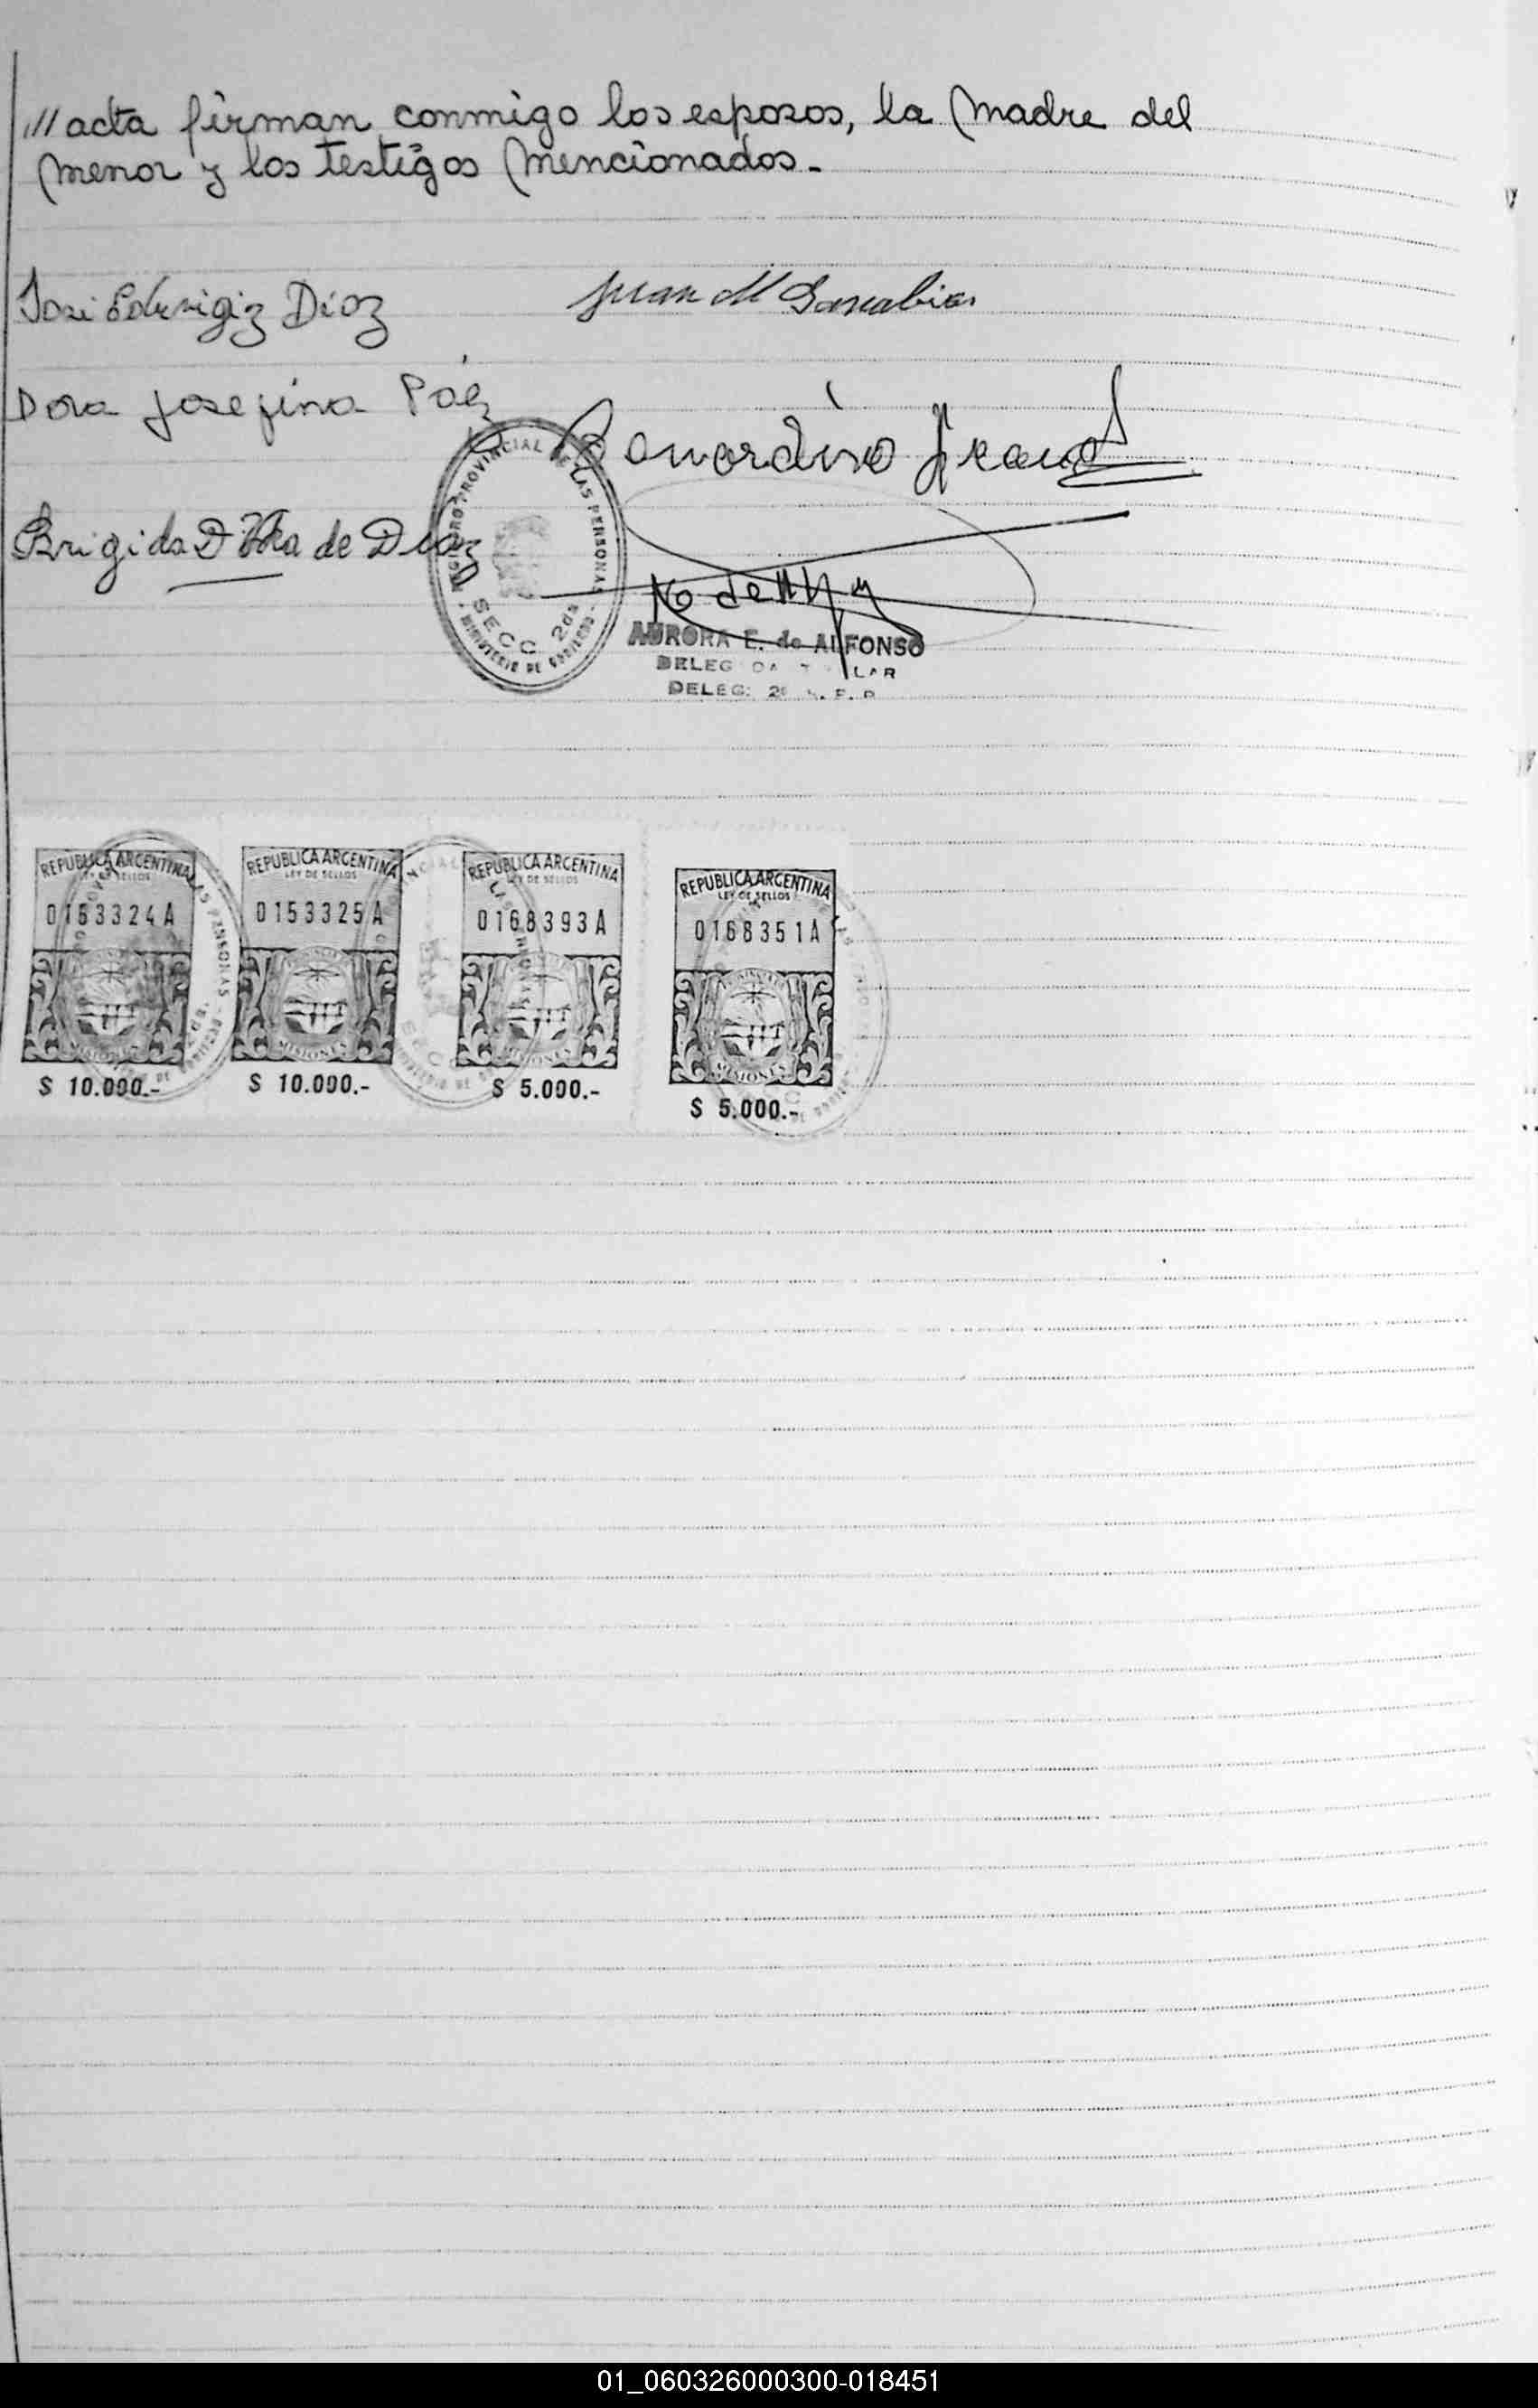 /// acta firman conmigo los esposos, la Madre del
menor y los Testigos mencionados.-
Diaz
Juan M Sanabria
Dora Josefina Páez
Brigida D de Diaz
REGISTRO PROVINCIAL DE LAS PERSONAS
SECC 2da
MINISTERIO DE GOBIERNO
AURORA E. de ALFONSO
DELEG
DELEG:
REPUBLICA ARGENTINA
LEY DE SELLOS
0153324A
MISIONES
$ 10.000.-
REPUBLICA ARGENTINA
LEY DE SELLOS
0153325A
MISIONES
$ 10.000.-
REPUBLICA ARGENTINA
LEY DE SELLOS
0168393A
MISIONES
$ 5.000.-
REPUBLICA ARGENTINA
LEY DE SELLOS
0168351A
MISIONES
$ 5.000.-
01_060326000300-018451